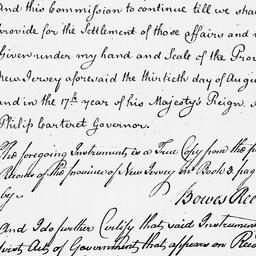 And this Commission to continue till we shal
provide for the Settlement of those affairs and n
Given under my hand and Seale of the Prov
New Jersey aforesaid the thirtieth day of Augu
and in the 17th year of his Majestys Reign.
Philip Carteret Governor.
The foregoing Instruments is a True Copy from the
of the province of New Jersey in Book 3. pag
by.
Bowes Ree
And I do further Certify that said Instrumen
first Acts of Government that appears on Reco